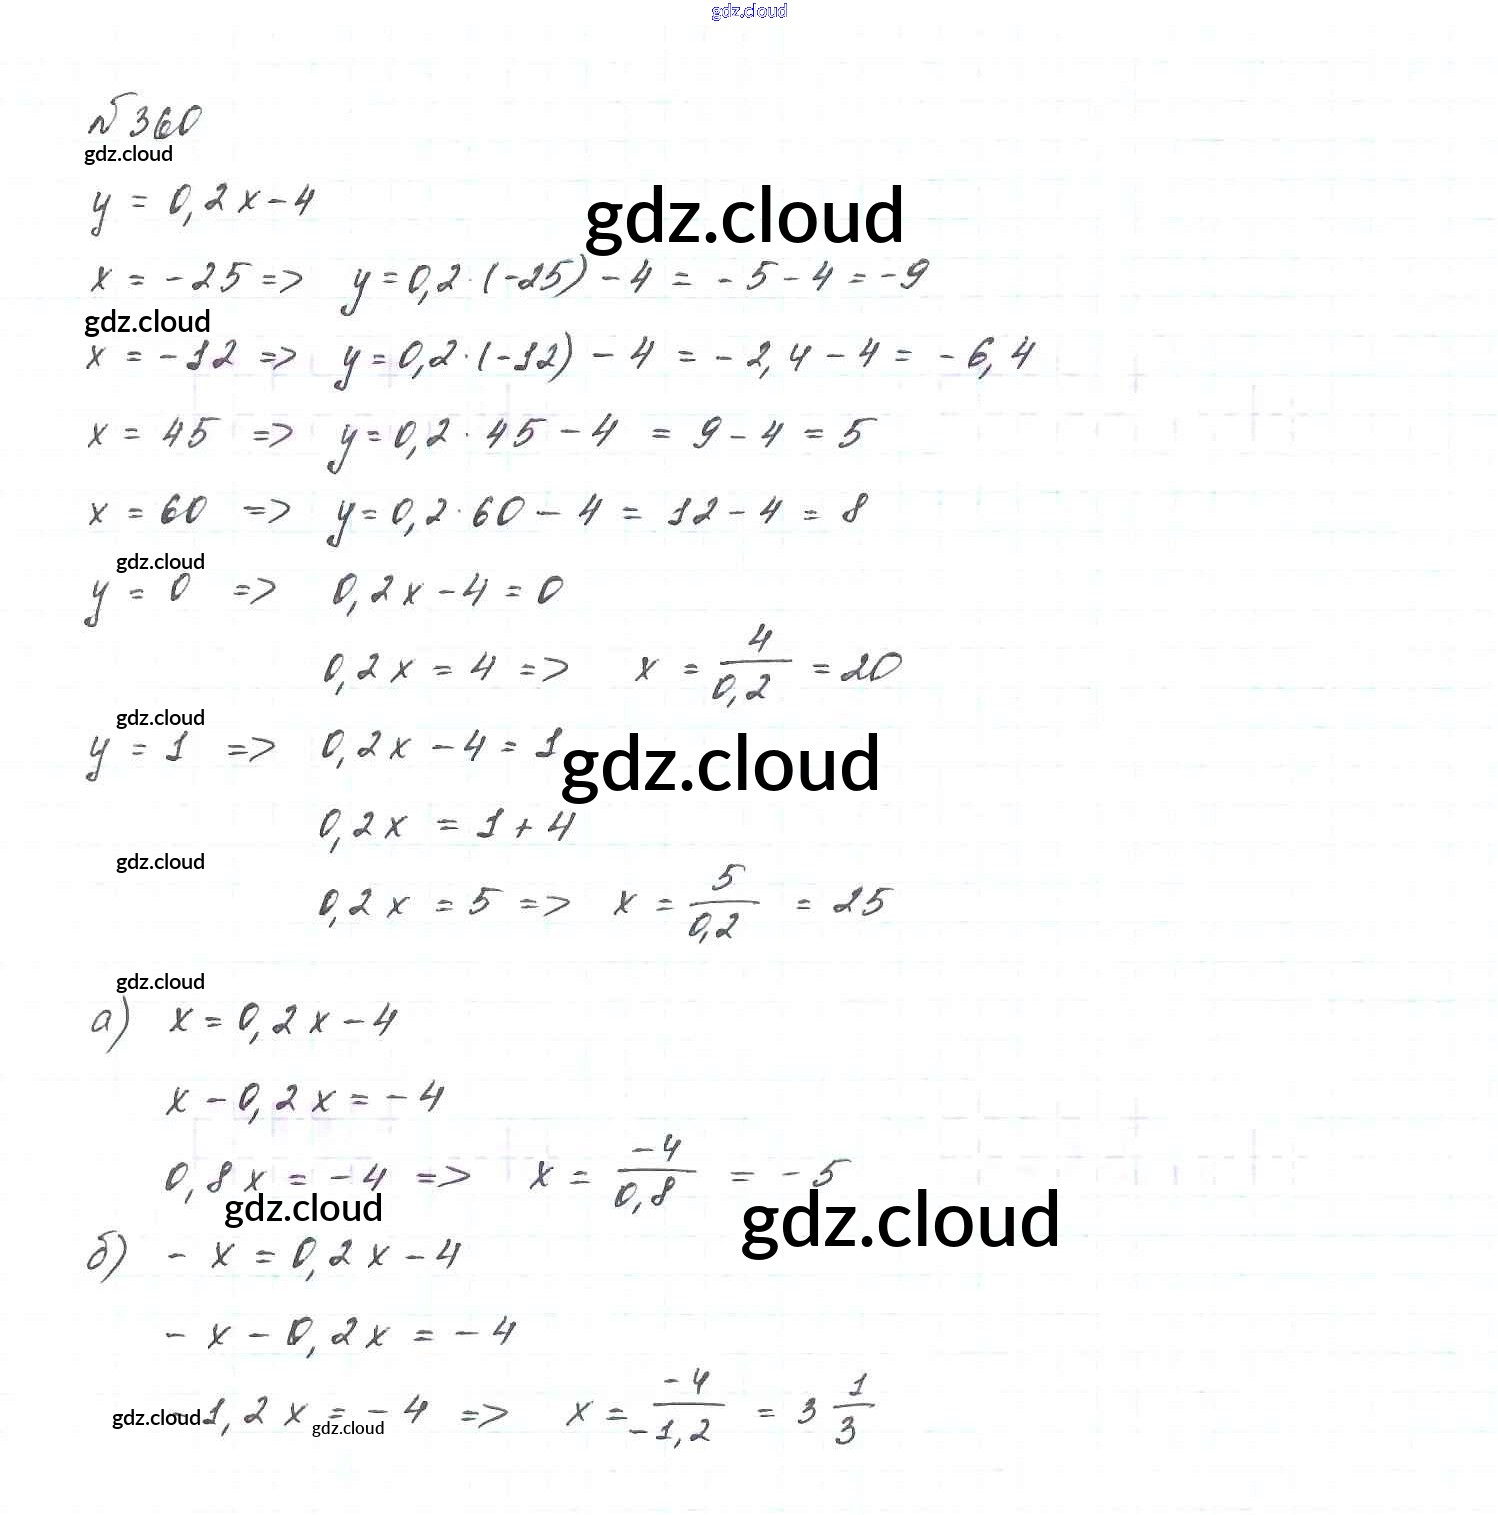 gdz.cloud
№360
gdz.cloud
y = 0,2x - 4
gdz.cloud
x = -25 => y = 0,2·(-25) - 4 = -5 - 4 = -9
gdz.cloud
x = -12 => y = 0,2·(-12) - 4 = -2,4 - 4 = -6,4
x = 45 => y = 0,2·45 - 4 = 9 - 4 = 5
x = 60 => y = 0,2·60 - 4 = 12 - 4 = 8
gdz.cloud
y = 0 => 0,2x - 4 = 0
0,2x = 4 => x = 4/0,2 = 20
gdz.cloud
y = 1 => 0,2x - 4 = 1
gdz.cloud
0,2x = 1 + 4
gdz.cloud
0,2x = 5 => x = 5/0,2 = 25
gdz.cloud
а) x = 0,2x - 4
x - 0,2x = -4
0,8x = -4 => x = -4/0,8 = -5
gdz.cloud
gdz.cloud
б) -x = 0,2x - 4
-x - 0,2x = -4
-1,2x = -4 => x = -4/-1,2 = 3 1/3
gdz.cloud
gdz.cloud